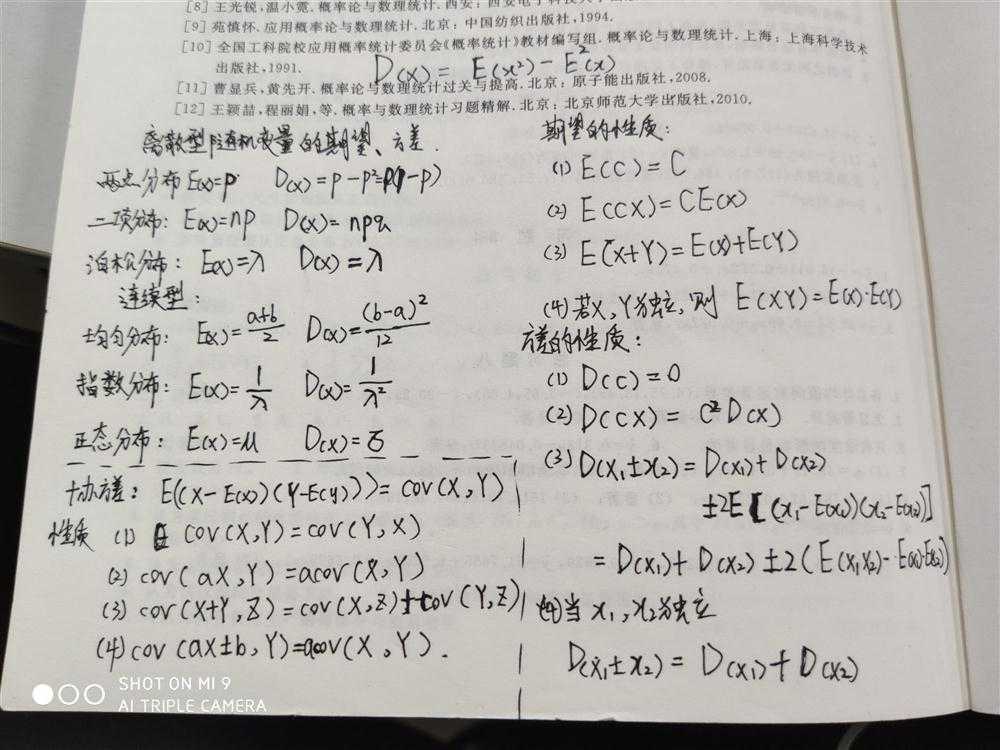 [8] 王光锐,温小霓.概率论与数理统计.西安:西安电子科技大学出版
[9] 苑慎怀.应用概率论与数理统计.北京:中国纺织出版社,1994.
[10] 全国工科院校应用概率统计委员会《概率统计》教材编写组.概率论与数理统计.上海:上海科学技术
出版社,1991.
D(x) = E(x²) - E²(x)
[11] 曹显兵,黄先开.概率论与数理统计过关与提高.北京:原子能出版社,2008.
[12] 王颖喆,程丽娟,等.概率与数理统计习题精解.北京:北京师范大学出版社,2010.
离散型随机变量的期望、方差.
两点分布 E(x)=p D(x)=p-p²=p(1-p)
二项分布: E(x)=np D(x)=npq
泊松分布: E(x)=λ D(x)=λ
连续型:
均匀分布: E(x)=\frac{a+b}{2} D(x)=\frac{(b-a)²}{12}
指数分布: E(x)=\frac{1}{λ} D(x)=\frac{1}{λ²}
正态分布: E(x)=μ D(x)=σ
协方差: E((x-E(x))(Y-E(y)))=cov(X,Y)
性质 (1) cov(X,Y)=cov(Y,X)
(2) cov(aX,Y)=acov(X,Y)
(3) cov(X+Y,Z)=cov(X,Z)+cov(Y,Z)
(4) cov(aX±b,Y)=acov(X,Y).
期望的性质:
(1) E(C)=C
(2) E(CX)=CE(X)
(3) E(X+Y)=E(X)+E(Y)
(4) 若X,Y独立,则 E(XY)=E(X)·E(Y)
方差的性质:
(1) D(C)=0
(2) D(CX)=C²D(X)
(3) D(x₁±x₂)=D(x₁)+D(x₂)
±2E[(x₁-E(x₁))(x₂-E(x₂))]
=D(x₁)+D(x₂)±2(E(x₁x₂)-E(x₁)·E(x₂))
(4) 当x₁,x₂独立
D(x₁±x₂)=D(x₁)+D(x₂)
SHOT ON MI 9
AI TRIPLE CAMERA